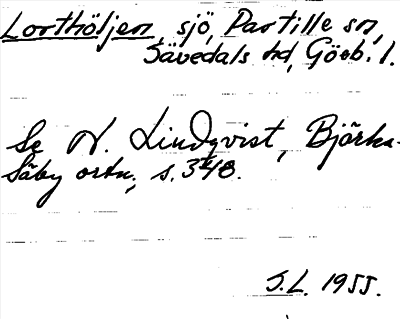 Lorthöljen, sjö, Partille sn,
Sävedals hd, Göeb. l.
Se N. Lindqvist, Björka-
Säby ortn., s. 348.
S.L. 1955.